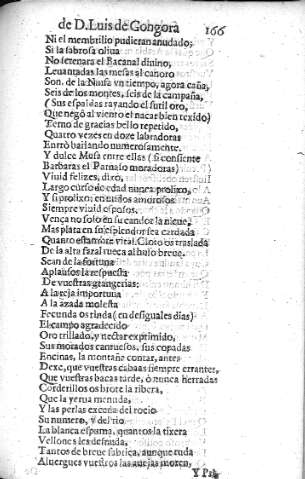 de D. Luis de Gongora 166
Ni el membrilio pudieran anudado;
Si la sabrosa oliua
No serenara el Bacanal diuino,
Leuantadas las mesas al canoro
Son. de la Ninfa vn tiempo, agora caña,
Seis de los montes, seis de la campaña,
(Sus espaldas rayando el sutil oro,
Que negò al viento el nacar bien texido)
Terno de gracias bello repetido,
Quatro vezes en doze labradoras
Entrò bailando numerosamente.
Y dulce Musa entre ellas (si consiente
Barbaras el Parnaso moradoras)
Viuid felizes, dixo,
Largo curso de edad nunca prolixo,
Y si prolixo, en nudos amorosos
Siempre viuid esposos.
Vença no solo en su candor la nieue,
Mas plata en su esplendor sea cardada
Quanto estambre vital Cloto os traslada
De la alta fatal rueca al huso breue.
Sean de la fortuna
Aplausos la respuesta
De vuestras grangerias:
A la reja importuna
A la azada molesta
Fecunda os rinda (en desiguales dias)
El campo agradecido
Oro trillado, y nectar exprimido,
Sus morados cantuesos, sus copadas
Encinas, la montaña contar, antes
Dexe, que vuestras cabras siempre errantes,
Que vuestras bacas tarde, ò nunca herradas
Corderillos os brote la ribera,
Que la yerua menuda,
Y las perlas exceda del rocio
Su numero, y del rio
La blanca espuma, quantos la tixera
Vellones les desnuda,
Tantos de breue fabrica, aunque ruda
Aluergues vuestros las auejas moren,